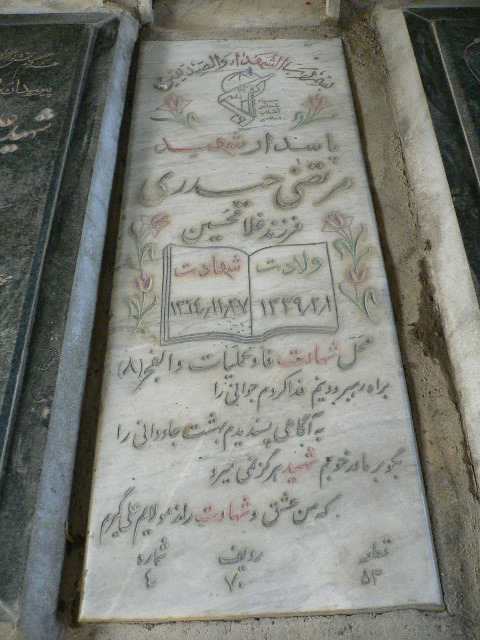 بسم رب الشهداء والصدیقین
سپاه
پاسداران
انقلاب
اسلامی
پاسدار شهید
مرتضی حیدری
فرزند غلامحسین
ولادت شهادت
۱۳۳۹/۲/۱ ۱۳۶۴/۱۱/۲۷
محل شهادت فاو عملیات والفجر (۸)
براه رهبر و دینم فدا کردم جوانی را
به آگاهی پسندیدم بهشت جاودانی را
بگو بر مادر خوبم شهید هرگز نمی میرد
که من عشق و شهادت را ز مولایم علی گیرم
قطعه ردیف شماره
۵۳ ۷۰ ۴